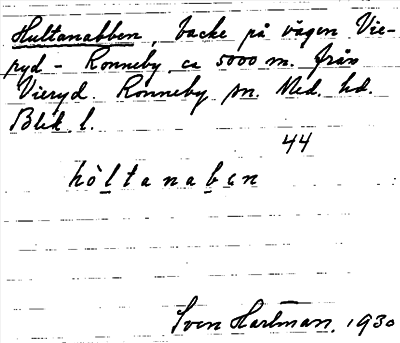 Hultanabben, backe på vägen Vie-
ryd - Ronneby, ca 5000 m. från
Vieryd. Ronneby sn. Med. hd.
Blek. l.
44
hòltanaben
Sven Hartman, 1930